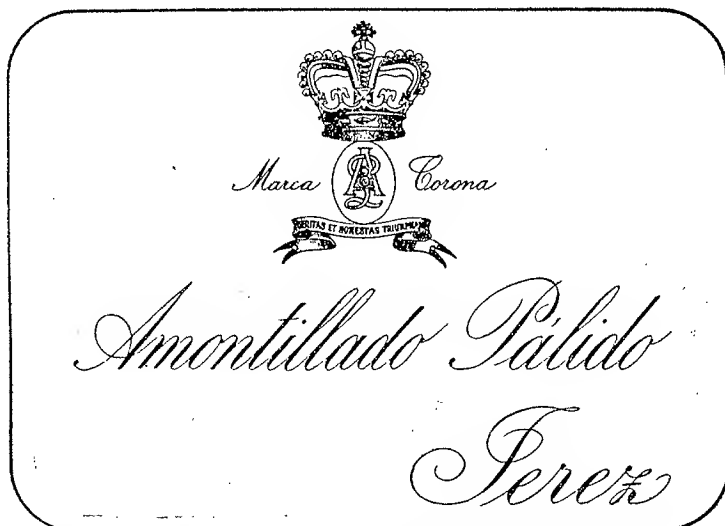 Marca Corona
VERITAS ET HONESTAS TRIUMPHANS
Amontillado Pálido
Jerez